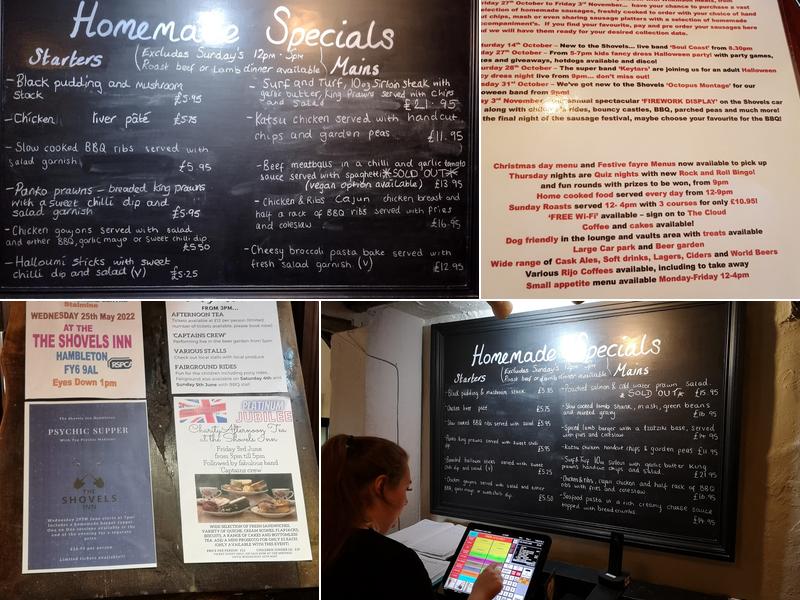 Homemade Specials
(Excludes Sunday's 12pm - 5pm
Roast beef or Lamb dinner available)
Starters
- Black pudding and mushroom
stack £5.95
- Chicken liver pâté £5.75
- Slow cooked BBQ ribs served with
salad garnish £5.95
- Panko prawns - breaded king prawns
with a sweet chilli dip and
salad garnish £5.95
- Chicken goujons served with salad
and either BBQ, garlic mayo or sweet chilli dip
£5.50
- Halloumi sticks with sweet
chilli dip and salad (v) £5.25
Mains
- Surf and Turf, 10oz Sirloin steak with
garlic butter, King Prawns served with chips
and salad £21.95
- Katsu chicken served with handcut
chips and garden peas £11.95
- Beef meatballs in a chilli and garlic tomato
sauce served with spaghetti *SOLD OUT*
(vegan option available) £13.95
- Chicken & Ribs Cajun chicken breast and
half a rack of BBQ ribs served with fries
and coleslaw £16.95
- Cheesy broccoli pasta bake served with
fresh salad garnish (v) £12.95
Friday 27th October to Friday 3rd November... have your chance to purchase a vast
selection of homemade sausages, freshly cooked to order with your choice of hand
cut chips, mash or even sharing sausage platters with a selection of homemade
accompaniments. If you find your favourite, pay and pre order your sausages
we will have them ready for your desired collection date.
Saturday 14th October - New to the Shovels... live band 'Soul Coast' from 8.30pm
Friday 27th October - From 5-7pm kids fancy dress Halloween party! with party games,
prizes and giveaways, hotdogs available and disco!
Saturday 28th October - The super band 'Keytus' are joining us for an adult Halloween
fancy dress night live from 9pm... don't miss out!
Tuesday 31st October - We've got new to the Shovels 'Octopus Montage' for our
Halloween band from 9pm!
3rd November annual spectacular 'FIREWORK DISPLAY' on the Shovels car
along with rides, bouncy castles, BBQ, parched peas and much more!
the final night of the sausage festival, maybe choose your favourite for the BBQ!
Christmas day menu and Festive fayre Menus now available to pick up
Thursday nights are Quiz nights with new Rock and Roll Bingo!
and fun rounds with prizes to be won, from 9pm
Home cooked food served every day from 12-9pm
Sunday Roasts served 12- 4pm with 3 courses for only £10.95!
'FREE Wi-Fi' available – sign on to The Cloud
Coffee and cakes available!
Dog friendly in the lounge and vaults area with treats available
Large Car park and Beer garden
Wide range of Cask Ales, Soft drinks, Lagers, Ciders and World Beers
Various Rijo Coffees available, including to take away
Small appetite menu available Monday-Friday 12-4pm
Stalmine
WEDNESDAY 25th May 2022
AT THE
THE SHOVELS INN
HAMBLETON
FY6 9AL
RSPCA
Eyes Down 1pm
FROM 3PM...
AFTERNOON TEA
Tickets available at £12 per person (limited
number of tickets available, please book now)
'CAPTAINS CREW'
Performing live in the beer garden from 5pm
VARIOUS STALLS
Check out local stalls with local produce
FAIRGROUND RIDES
Fun for the children including pony rides.
Fairground also available on Saturday 4th and
Sunday 5th June with BBQ too!
The Shovels Inn Hambleton
PSYCHIC SUPPER
THE
SHOVELS
INN
Wednesday 29th June starts at 7pm!
Limited tickets available!!
PLATINUM
JUBILEE
Charity Afternoon Tea
at the Shovels Inn
Friday 3rd June
from 3pm till 5pm
Followed by fabulous band
'Captains crew'
WIDE SELECTION OF FRESH SANDWICHES,
VARIETY OF QUICHE, CREAM SCONES, FLAPJACKS,
BISCUITS, A RANGE OF CAKES AND BOTTOMLESS
TEA. ADD A MINI PROSECCO FOR ONLY £5 EACH!
(ONLY AVAILABLE WITH THIS EVENT)
Homemade Specials
(Excludes Sunday's 12pm - 5pm
Roast beef or Lamb dinner available)
Starters
Black pudding & mushroom stack £5.95
Chicken liver pate £5.75
Slow cooked BBQ ribs served with salad £5.95
Panko king prawns served with sweet chilli
Breaded halloumi sticks served with sweet
chilli dip and salad (v) £5.25
Chicken goujons served with salad and either
BBQ, garlic mayo or sweet chilli dip £5.50
Mains
- Poached salmon & cold water prawn salad
*SOLD OUT* £15.95
- Slow cooked lamb shank, mash, green beans
and minted gravy £16.95
- Spiced lamb burger with a tzatziki base, served
with fries and coleslaw £14.95
- Katsu chicken handcut chips & garden peas £11.95
- Surf & Turf 10oz Sirloin with garlic butter king
prawns handcut chips and salad £21.95
- Chicken & ribs, cajun chicken and half rack of BBQ
ribs with fries and coleslaw £16.95
- Seafood pasta in a creamy cheese sauce
topped with bread crumbs £14.95